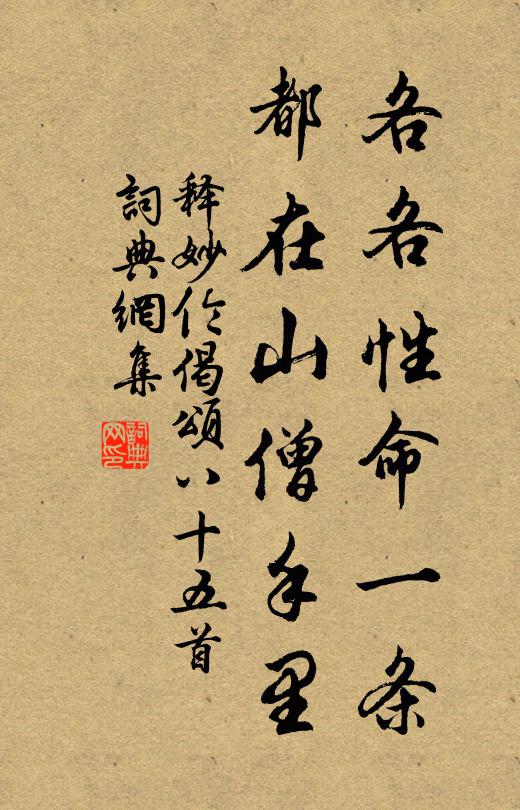 各各性命一条
都在山僧手里
释妙伦偈頌八十五首
詞典網集
詞典网印